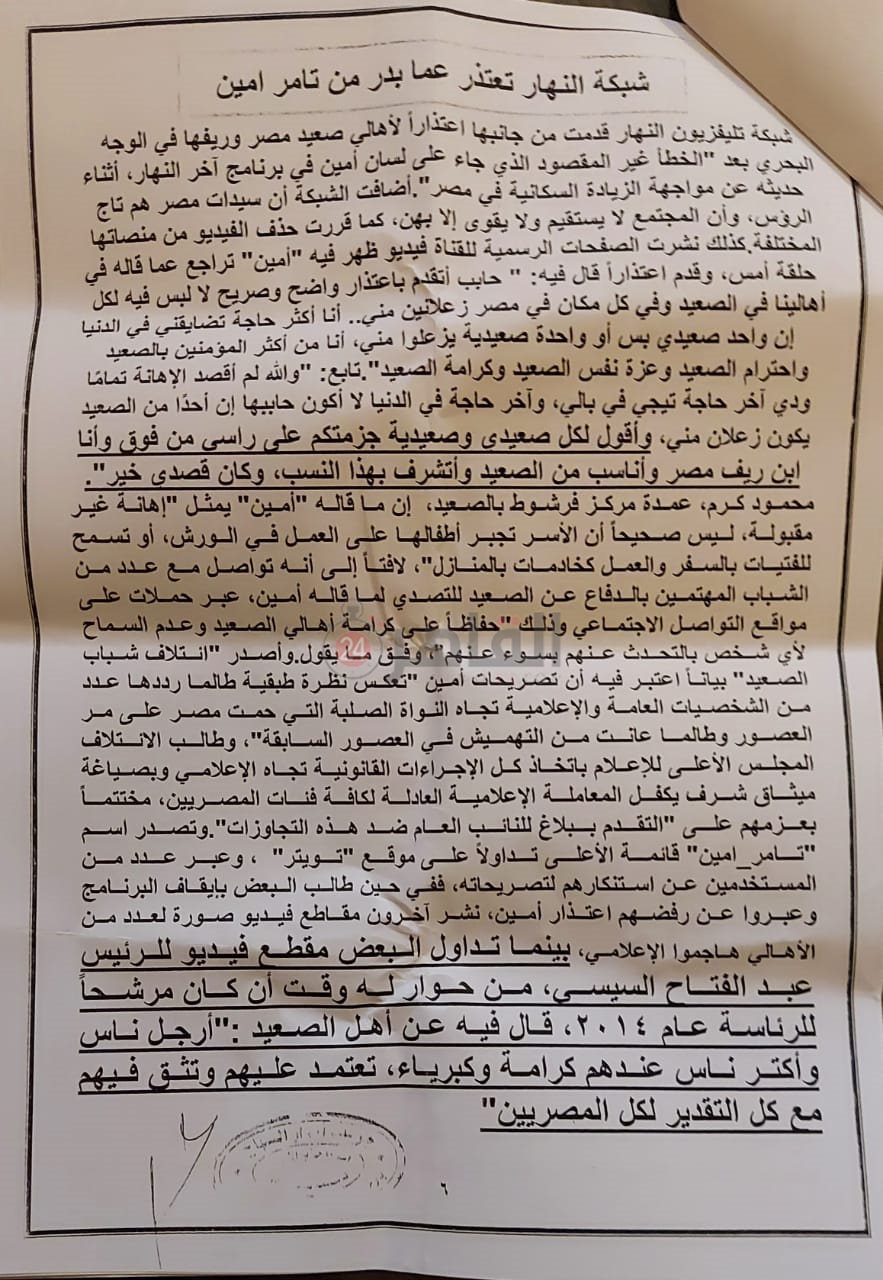 شبكة النهار تعتذر عما بدر من تامر امين
شبكة تليفزيون النهار قدمت من جانبها اعتذاراً لأهالي صعيد مصر وريفها في الوجه
البحري بعد "الخطأ غير المقصود الذي جاء على لسان أمين في برنامج آخر النهار، أثناء
حديثه عن مواجهة الزيادة السكانية في مصر".أضافت الشبكة أن سيدات مصر هم تاج
الرؤس، وأن المجتمع لا يستقيم ولا يقوى إلا بهن، كما قررت حذف الفيديو من منصاتها
المختلفة.كذلك نشرت الصفحات الرسمية للقناة فيديو ظهر فيه "أمين" تراجع عما قاله في
حلقة أمس، وقدم اعتذاراً قال فيه: " حابب أتقدم باعتذار واضح وصريح لا لبس فيه لكل
أهالينا في الصعيد وفي كل مكان في مصر زعلانين مني.. أنا أكثر حاجة تضايقني في الدنيا
إن واحد صعيدي بس أو واحدة صعيدية يزعلوا مني، أنا من أكثر المؤمنين بالصعيد
واحترام الصعيد وعزة نفس الصعيد وكرامة الصعيد".تابع: "والله لم أقصد الإهانة تمامًا
ودي آخر حاجة تيجي في بالي، وآخر حاجة في الدنيا لا أكون حاببها إن أحدًا من الصعيد
يكون زعلان مني، وأقول لكل صعيدي وصعيدية جزمتكم على راسي من فوق وأنا
ابن ريف مصر وأناسب من الصعيد وأتشرف بهذا النسب، وكان قصدي خير".
محمود كرم، عمدة مركز فرشوط بالصعيد، إن ما قاله "أمين" يمثل "إهانة غير
مقبولة، ليس صحيحاً أن الأسر تجبر أطفالها على العمل في الورش، أو تسمح
للفتيات بالسفر والعمل كخادمات بالمنازل"، لافتاً إلى أنه تواصل مع عدد من
الشباب المهتمين بالدفاع عن الصعيد للتصدي لما قاله أمين، عبر حملات على
مواقع التواصل الاجتماعي وذلك "حفاظاً على كرامة أهالي الصعيد وعدم السماح
لأي شخص بالتحدث عنهم بسوء عنهم"، وفق يقول.وأصدر "ائتلاف شباب
الصعيد" بياناً اعتبر فيه أن تصريحات أمين "تعكس نظرة طبقية طالما رددها عدد
من الشخصيات العامة والإعلامية تجاه النواة الصلبة التي حمت مصر على مر
العصور وطالما عانت من التهميش في العصور السابقة"، وطالب الائتلاف
المجلس الأعلى للإعلام باتخاذ كل الإجراءات القانونية تجاه الإعلامي وبصياغة
ميثاق شرف يكفل المعاملة الإعلامية العادلة لكافة فئات المصريين، مختتماً
بعزمهم على "التقدم ببلاغ للنائب العام ضد هذه التجاوزات".وتصدر اسم
"تامر_امين" قائمة الأعلى تداولاً على موقع "تويتر" ، وعبر عدد من
المستخدمين عن استنكارهم لتصريحاته، ففي حين طالب البعض بإيقاف البرنامج
وعبروا عن رفضهم اعتذار أمين، نشر آخرون مقاطع فيديو صورة لعدد من
الأهالي هاجموا الإعلامي، بينما تداول البعض مقطع فيديو للرئيس
عبد الفتاح السيسي، من حوار له وقت أن كان مرشحاً
للرئاسة عام ٢٠١٤، قال فيه عن أهل الصعيد :"أرجل ناس
وأكثر ناس عندهم كرامة وكبرياء، تعتمد عليهم وتثق فيهم
مع كل التقدير لكل المصريين"
٦
القاهرة 24